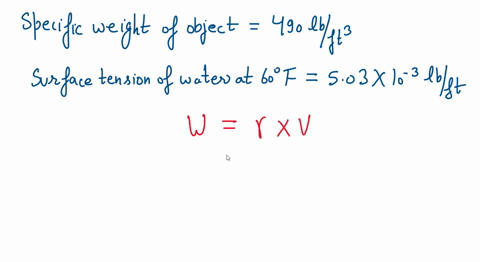 Specific weight of object = 490 lb/ft³
Surface tension of water at 60°F = 5.03 X 10⁻³ lb/ft
W = r x V